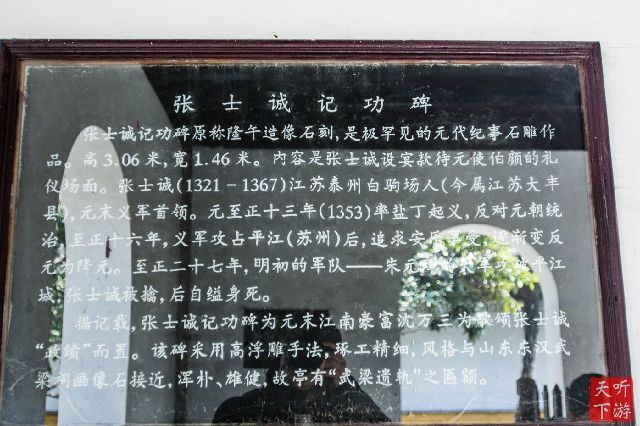 张士诚记功碑
张士诚记功碑原称隆年造像石刻，是极罕见的元代纪事石雕作
品。高3.06米，宽1.46米。内容是张士诚设宴款待元使伯颜的礼
仪场面。张士诚(1321－1367)江苏泰州白驹场人(今属江苏大丰
县)，元末义军首领。元至正十三年(1353)率盐丁起义，反对元朝统
治，至正十六年，义军攻占平江(苏州)后，追求安乐享受，逐渐变反
元为降元。至正二十七年，明初的军队——朱元璋的大军攻进平江
城，张士诚被擒，后自缢身死。
据记载，张士诚记功碑为元末江南豪富沈万三为歌颂张士诚
“政绩”而置。该碑采用高浮雕手法，琢工精细，风格与山东东汉武
梁祠画像石接近，浑朴、雄健，故亭有“武梁遗轨”之匾额。
听游
天下